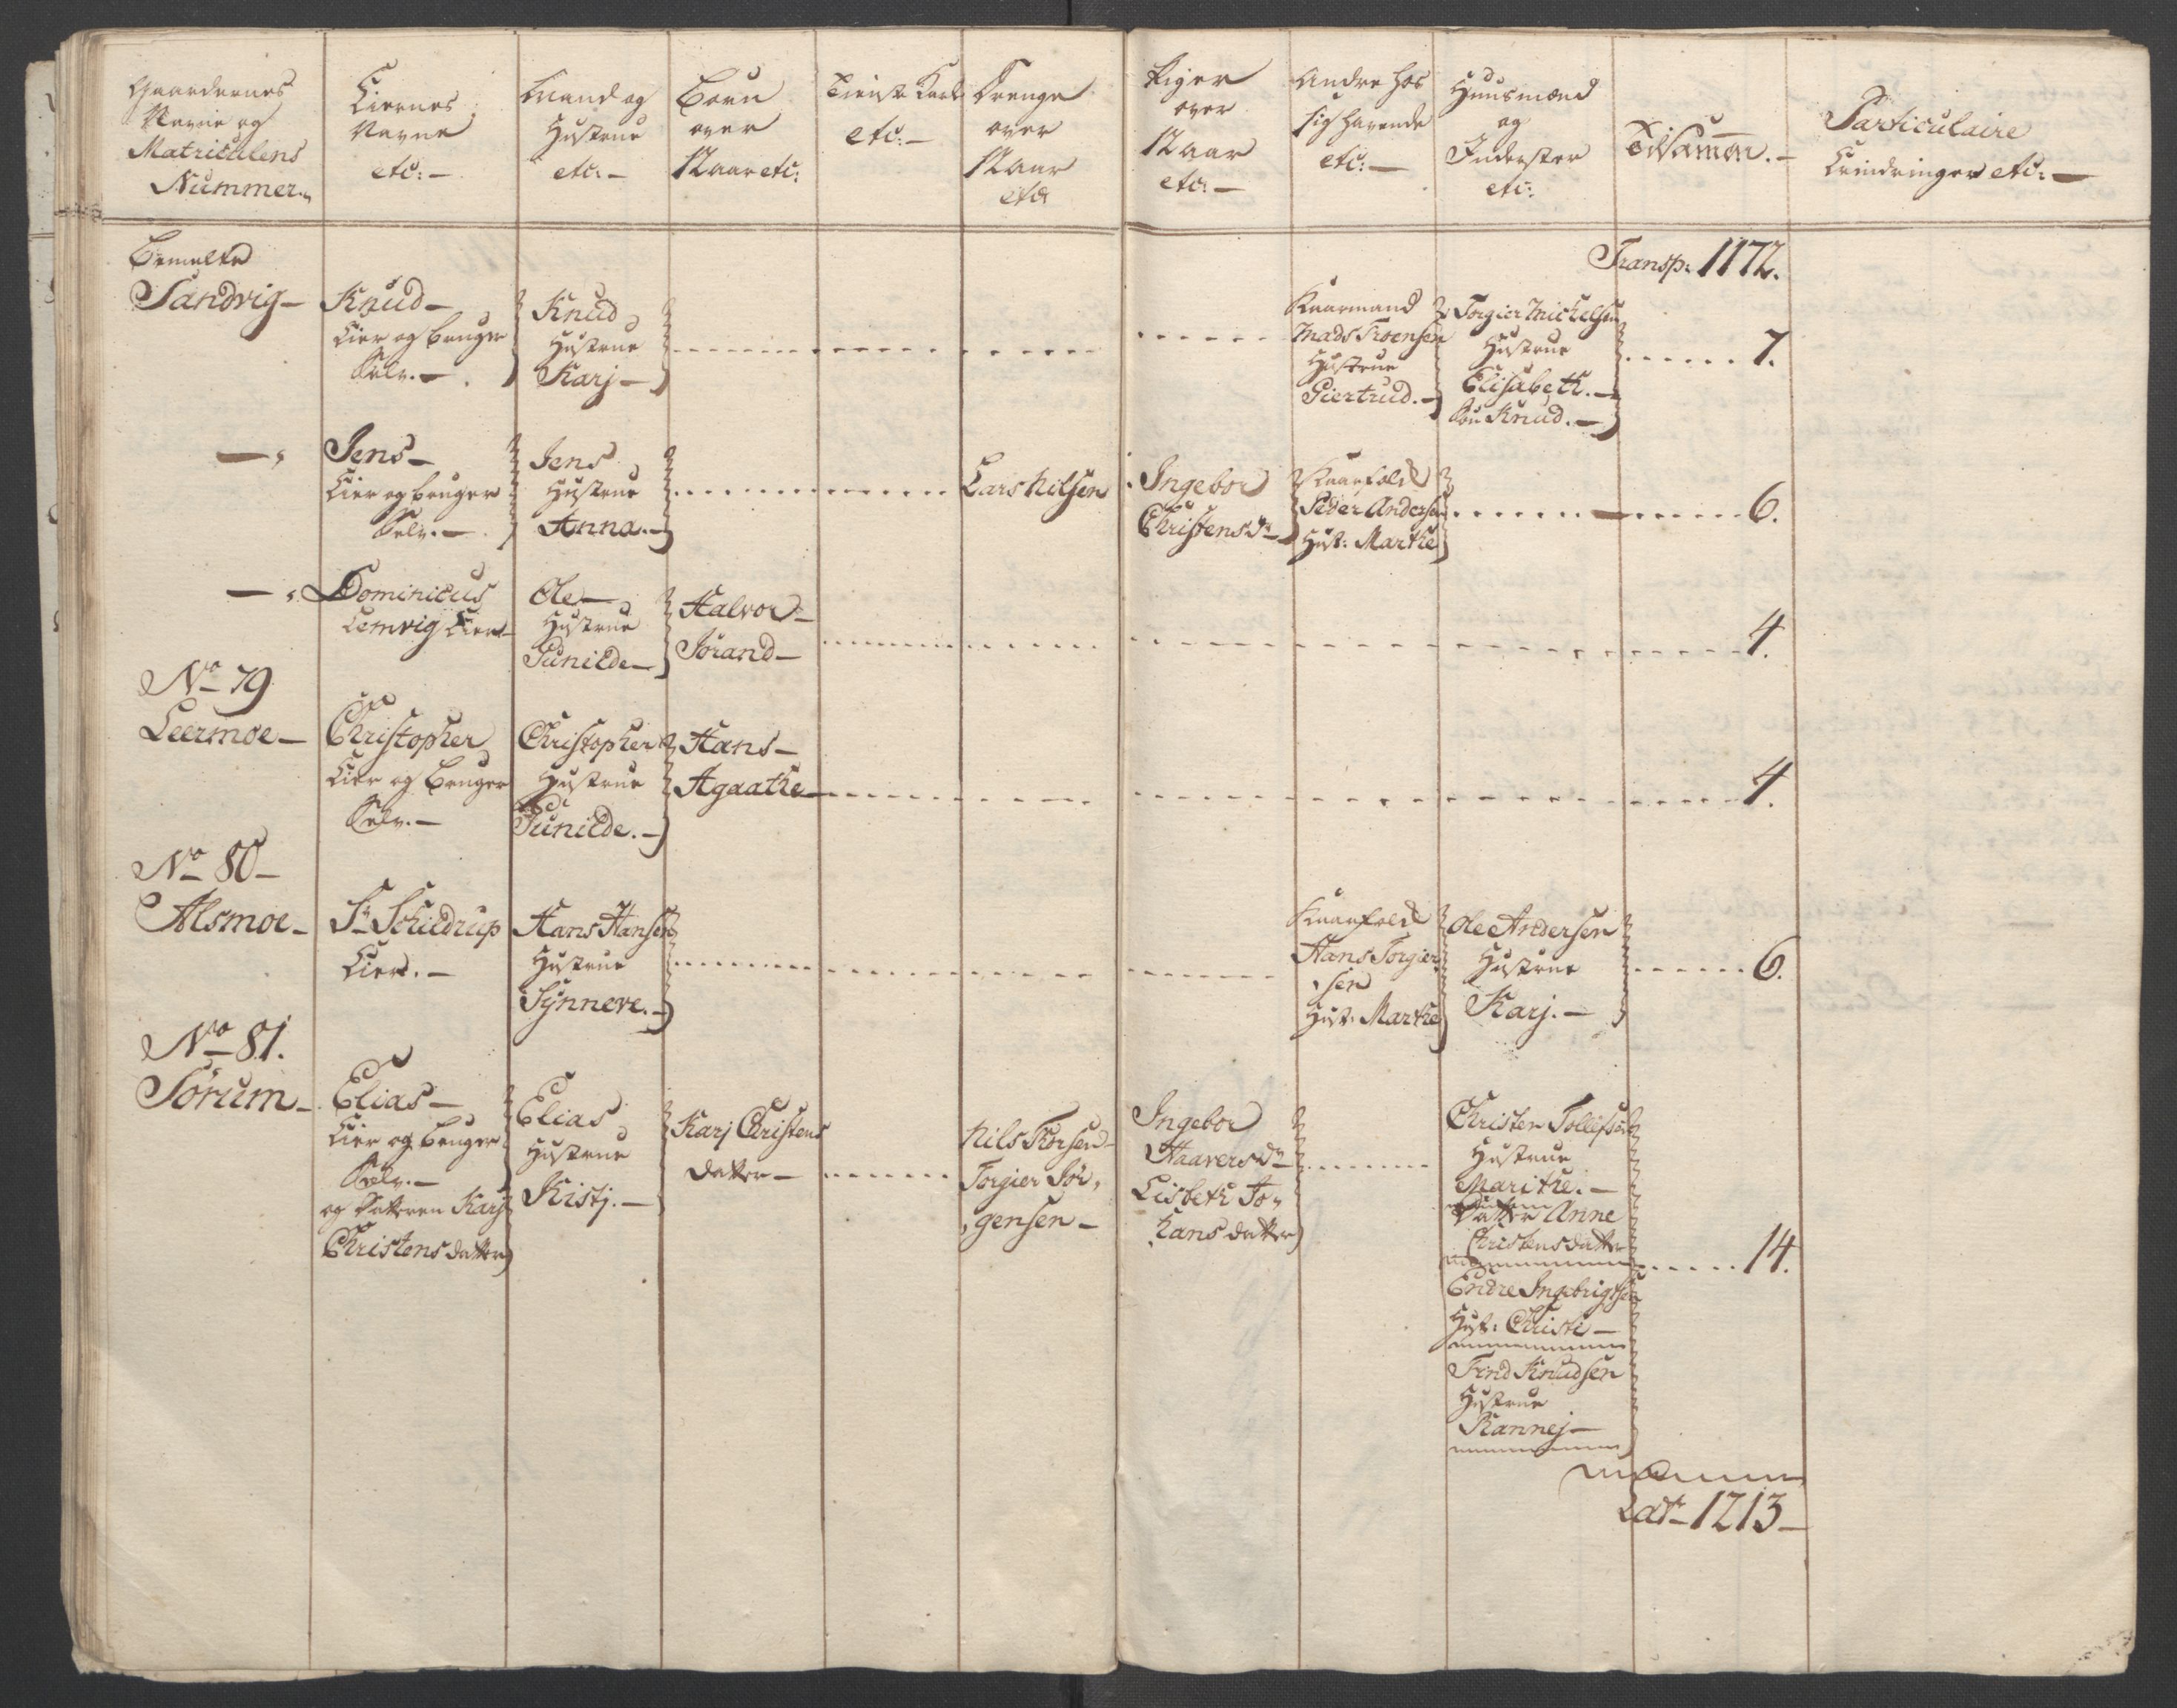 Gaardernes
Navne og
Matriculens
Nummer.
Eiernes
Navne
etc: —
Mand og
Hustrue
etc: —
Børn
over
12 aar etc:
Tieneste Karle
etc: —
Drenge
over
12 aar
etc:
Piger
over
12 aar
etc: —
Andre hos
sig havende
etc: —
Huusmænd
og
Inderster
etc:
Tilsamm. —
Particulaire
Erindringer etc: —
Transp: 1172.
Bemelte
Sandvig —
Knud —
Eier og bruger
Selv. —
Knud
Hustrue
Karj —
Kaarmand
Mads Troensen
Hustrue
Giertrud. —
Torgier Michelsen
Hustrue
Elisabeth. —
Søn Knud. —
7.
— "
Jens —
Eier og bruger
Selv. —
Jens
Hustrue
Anna. —
Lars Nilsen
Ingebor
Christensdr —
Kaarfolk
Peder Andersen
Hust: Marthe
6.
— "
Dominicus
Lemvig Eier —
Ole —
Hustrue
Gunilde —
Halvor —
Jørand —
4.
No 79
Leermoe —
Christopher
Eier og Bruger
Selv. —
Christopher
Hustrue
Gunilde. —
Hans —
Agaathe —
4.
No 80 —
Alsmoe —
Sr Schildrup
Eier. —
Hans Hansen
Hustrue
Synneve. —
Kaarfolk
Hans Torgier
sen
Hust: Marthe
Ole Andersen
Hustrue
Karj. —
6.
No 81.
Sørum —
Elias —
Eier og bruger
Selv. —
og Datteren Karj
Christensdatter
Elias
Hustrue
Kistj. —
Karj Christens
datter —
Nils Thorsen —
Torgier Jør,
gensen —
Ingebor
Haaversdr —
Lisbeth Jo,
hansdatter
Christen Tollefsen
Hustrue
Marithe. —
Datter Anne
Christensdatter
Endre Ingebrigtsen
Hust: Christi —
Find Knudsen
Hustrue
Rannej —
14.
Lat — 1213 —